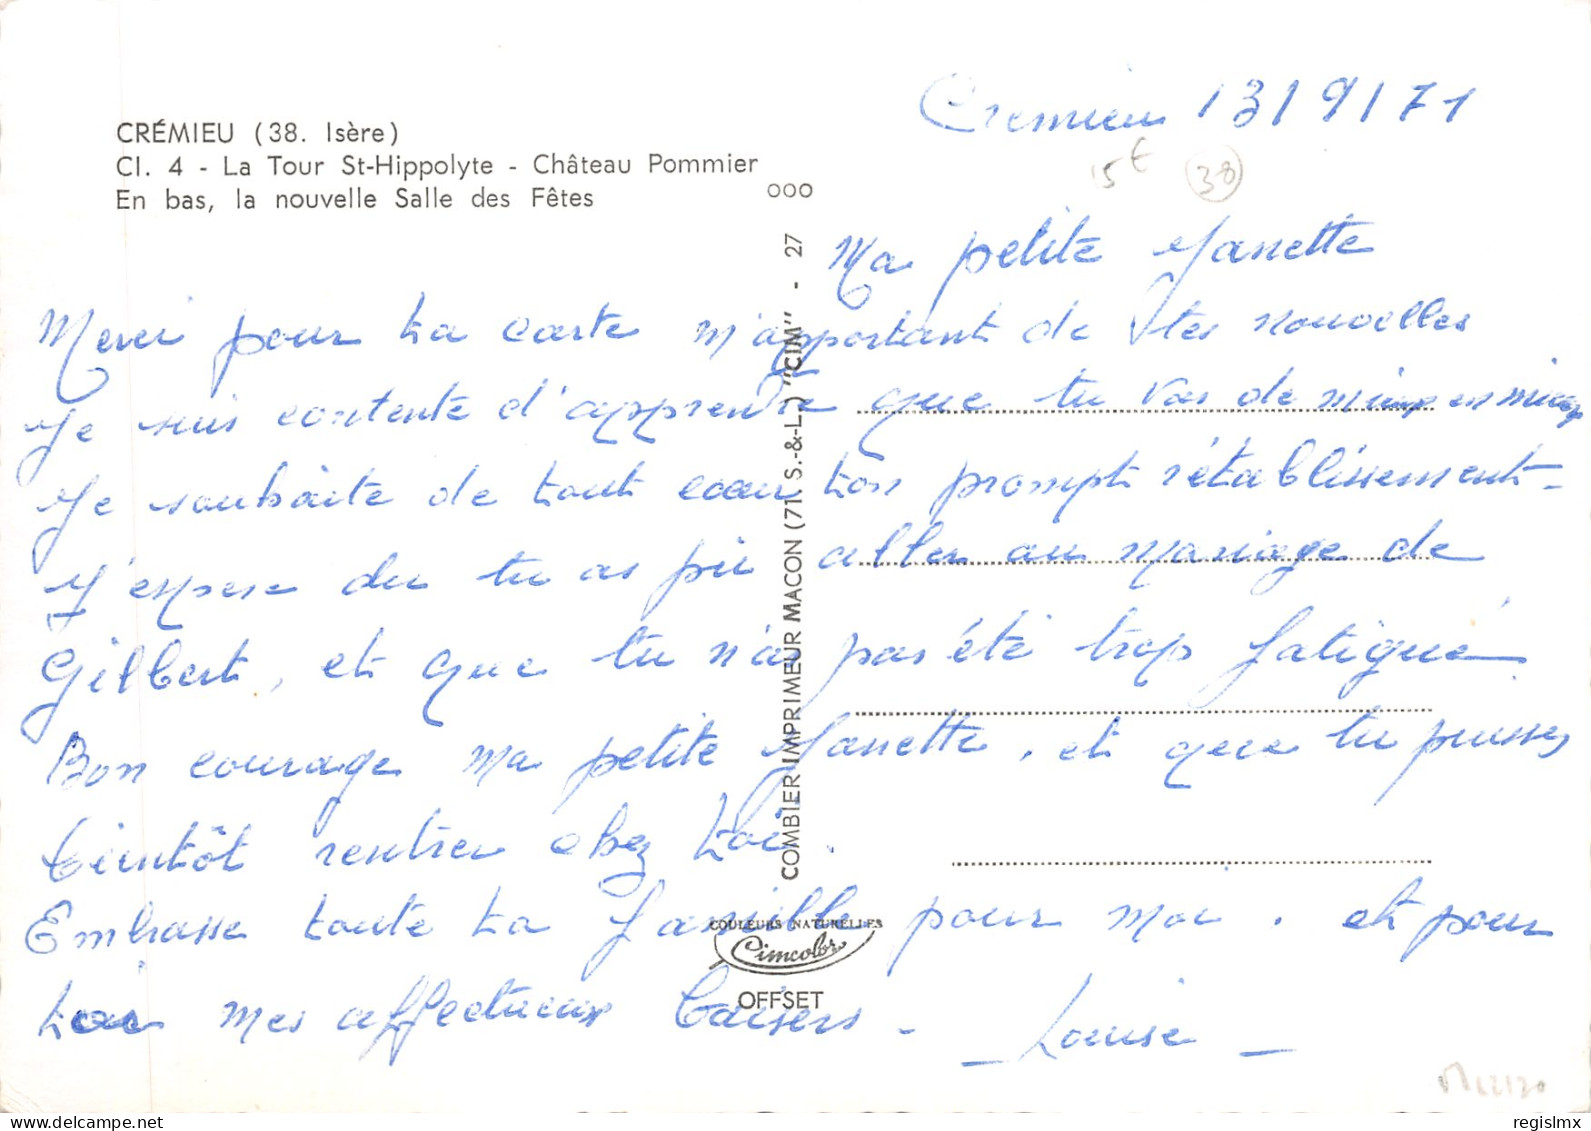 CRÉMIEU (38. Isère)
Cl. 4 - La Tour St-Hippolyte - Château Pommier
En bas, la nouvelle Salle des Fêtes
Cremieu 13/9/71
15€ 38
ooo
Ma petite Nanette
Merci pour ta carte m'apportant de tes nouvelles
Je suis contente d'apprendre que tu vas de mieux en mieux
Je souhaite de tout cœur ton prompt rétablissement -
J'espere du tu as pu aller au mariage de
Gilbert, et que tu n'as pas été trop fatigué
Bon courage ma petite Nanette, et que tu puisses
bientôt rentrer chez toi.
Embrasse toute ta famille pour moi, et pour
toi mes affectueux baisers -
- Louise -
COMBIER IMPRIMEUR MACON (71. S.-&-L.) "CIM" - 27
COULEURS NATURELLES
Cimcolor
OFFSET
regislmx